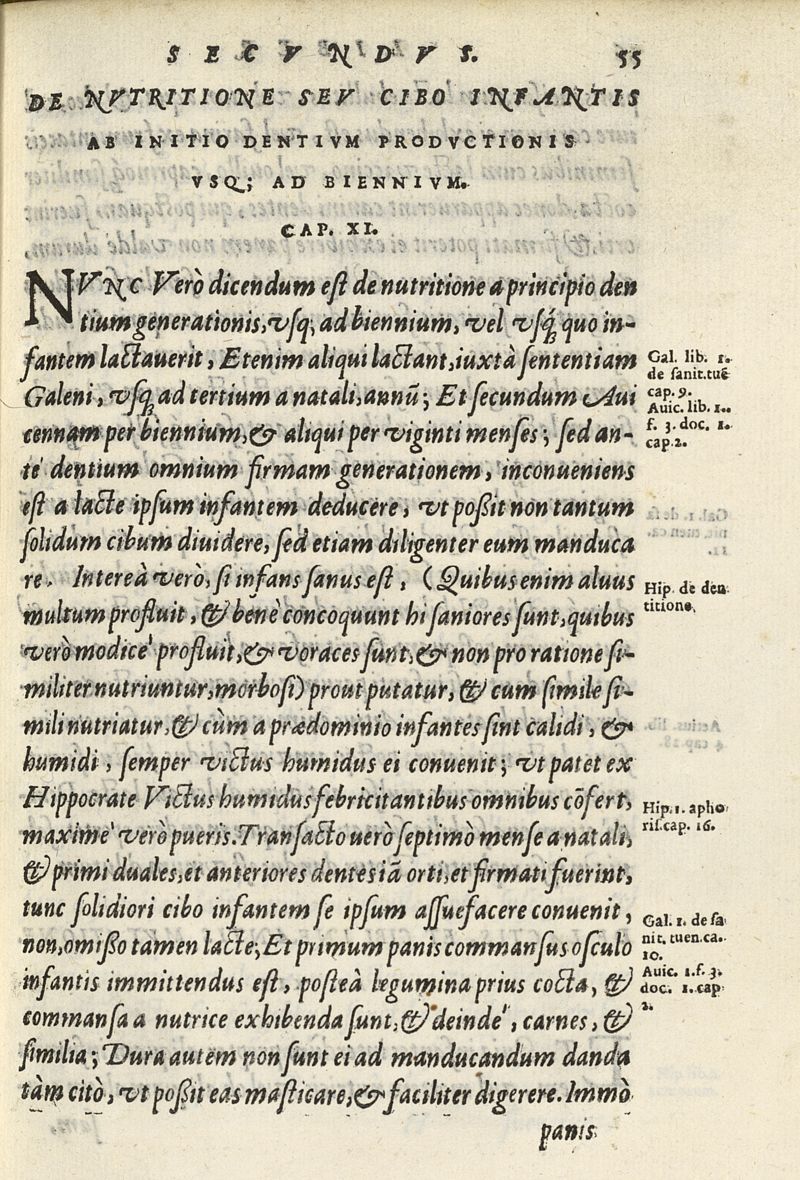 SECVNDVS. 55
DE NVTRITIONE SEV CIBO INFANTIS
AB INITIO DENTIVM PRODVCTIONIS
VSQ; AD BIENNIVM.
CAP. XI.
NVNC Verò dicendum est de nutritione a principio den
tium generationis, vsq; ad biennium, vel vsq; quo in-
fantem lactauerit, Etenim aliqui lactant, iuxtà sententiam
Galeni, vsq; ad tertium a natali, annũ; Et secundum Aui
cennam per biennium, & aliqui per viginti menses; sed an-
te dentium omnium firmam generationem, inconueniens
est a lacte ipsum infantem deducere, vt poßit non tantum
solidum cibum diuidere, sed etiam diligenter eum manduca
re. Intereà verò, si infans sanus est, (Quibus enim aluus
multum profluit, & benè concoquunt hi saniores sunt, quibus
verò modicè profluit, & voraces sunt, & non pro ratione si-
militer nutriuntur, morbosi) prout putatur, & cum simile si-
mili nutriatur, & cùm a prædominio infantes sint calidi, &
humidi, semper victus humidus ei conuenit; vt patet ex
Hippocrate Victus humidus febricitantibus omnibus cõfert,
maximè verò pueris. Transacto uerò septimò mense a natali,
& primi duales, et anteriores dentes iã orti, et firmati fuerint,
tunc solidiori cibo infantem se ipsum assuefacere conuenit,
non, omißo tamen lacte; Et primum panis commansus osculo
infantis immittendus est, posteà legumina prius cocta, &
commansa a nutrice exhibenda sunt, & deindè, carnes, &
similia; Dura autem non sunt ei ad manducandum danda
tàm citò, vt poßit eas masticare, & faciliter digerere. Immò
panis
Gal. lib. 1.
de sanit. tuẽ
cap. 9.
Auic. lib. 1.
f. 3. doc. 1.
cap. 2.
Hip. de den
titione.
Hip. 1. apho
ris. cap. 16.
Gal. 1. de sa
nit. tuen. ca.
10.
Auic. 1. f. 3.
doc. 1. cap
2.